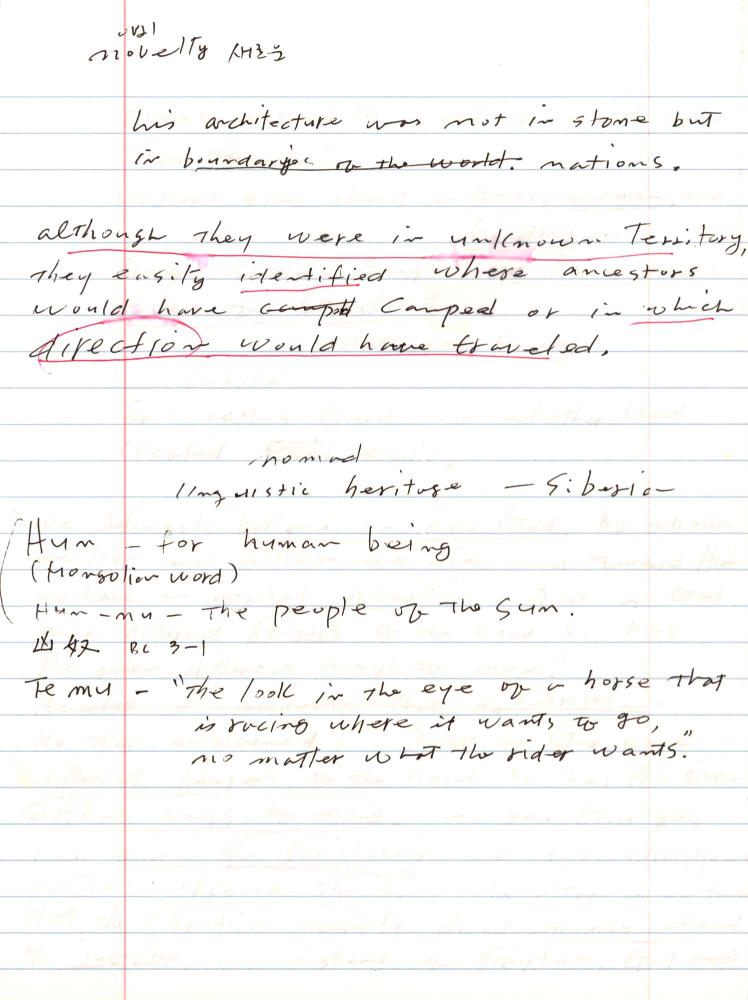 novelty 새로운
his architecture was not in stone but
in boundaries of the world. nations.
although they were in unknown Territory,
they easily identified where ancestors
would have camped Camped or in which
direction would have traveled.
nomad
linguistic heritage — Siberia
Hun – for human being
(Mongolian word)
Hun-nu – the people of the sun.
凶奴 BC 3-1
Temu – "The look in the eye of a horse that
is racing where it wants to go,
no matter what the rider wants."